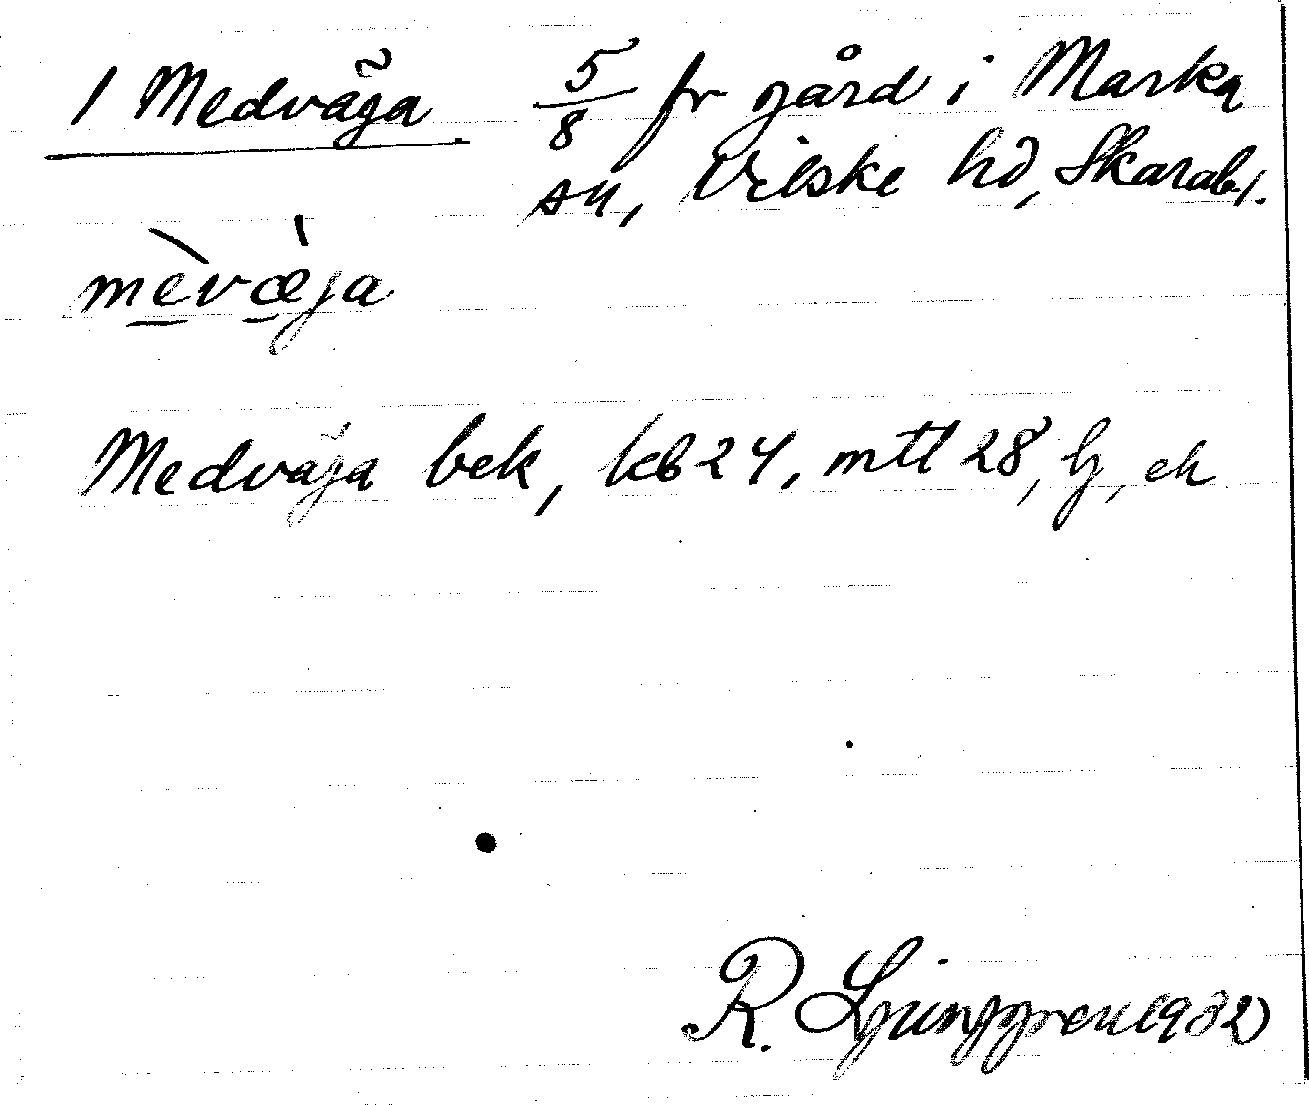 1 Medväga 5/8 fr gård i Marka
sn, Vilske hd, Skarab.l.
mèvæ̀ja
Medväga bek, kb 24, mtl 28, lj, ek
R. Ljunggren 1932